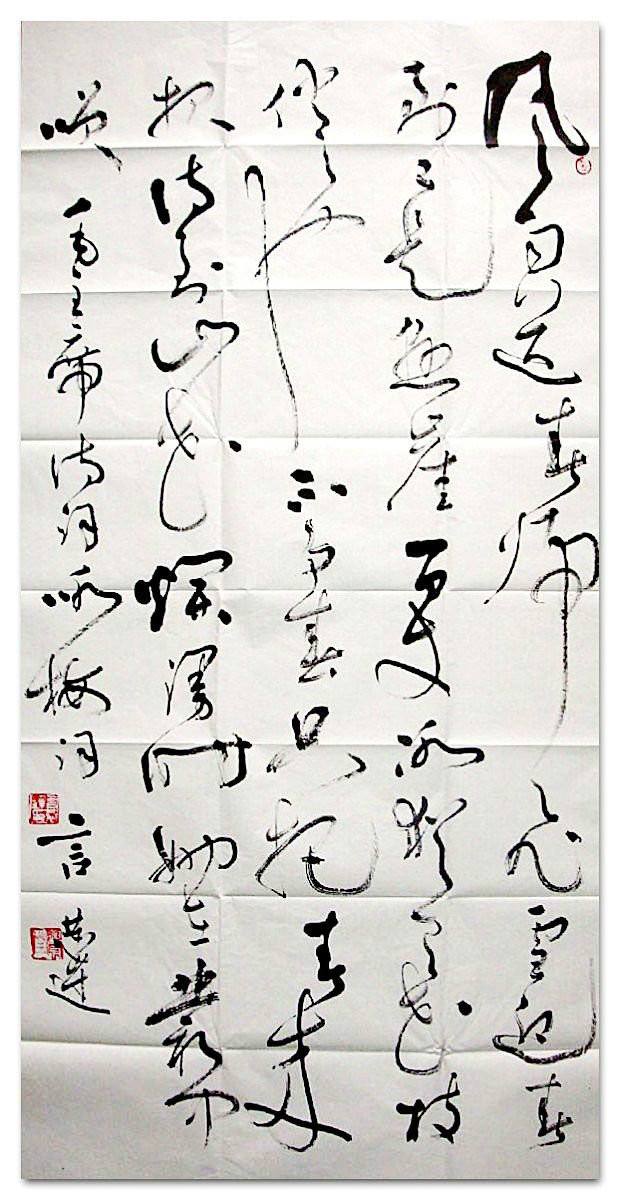 風雨送春歸飛雪迎春
到已是懸崖百丈冰猶有花枝
俏也不爭春只把春來
報待到山花爛漫時她在叢中
咲毛主席詩詞詠梅詞言恭達